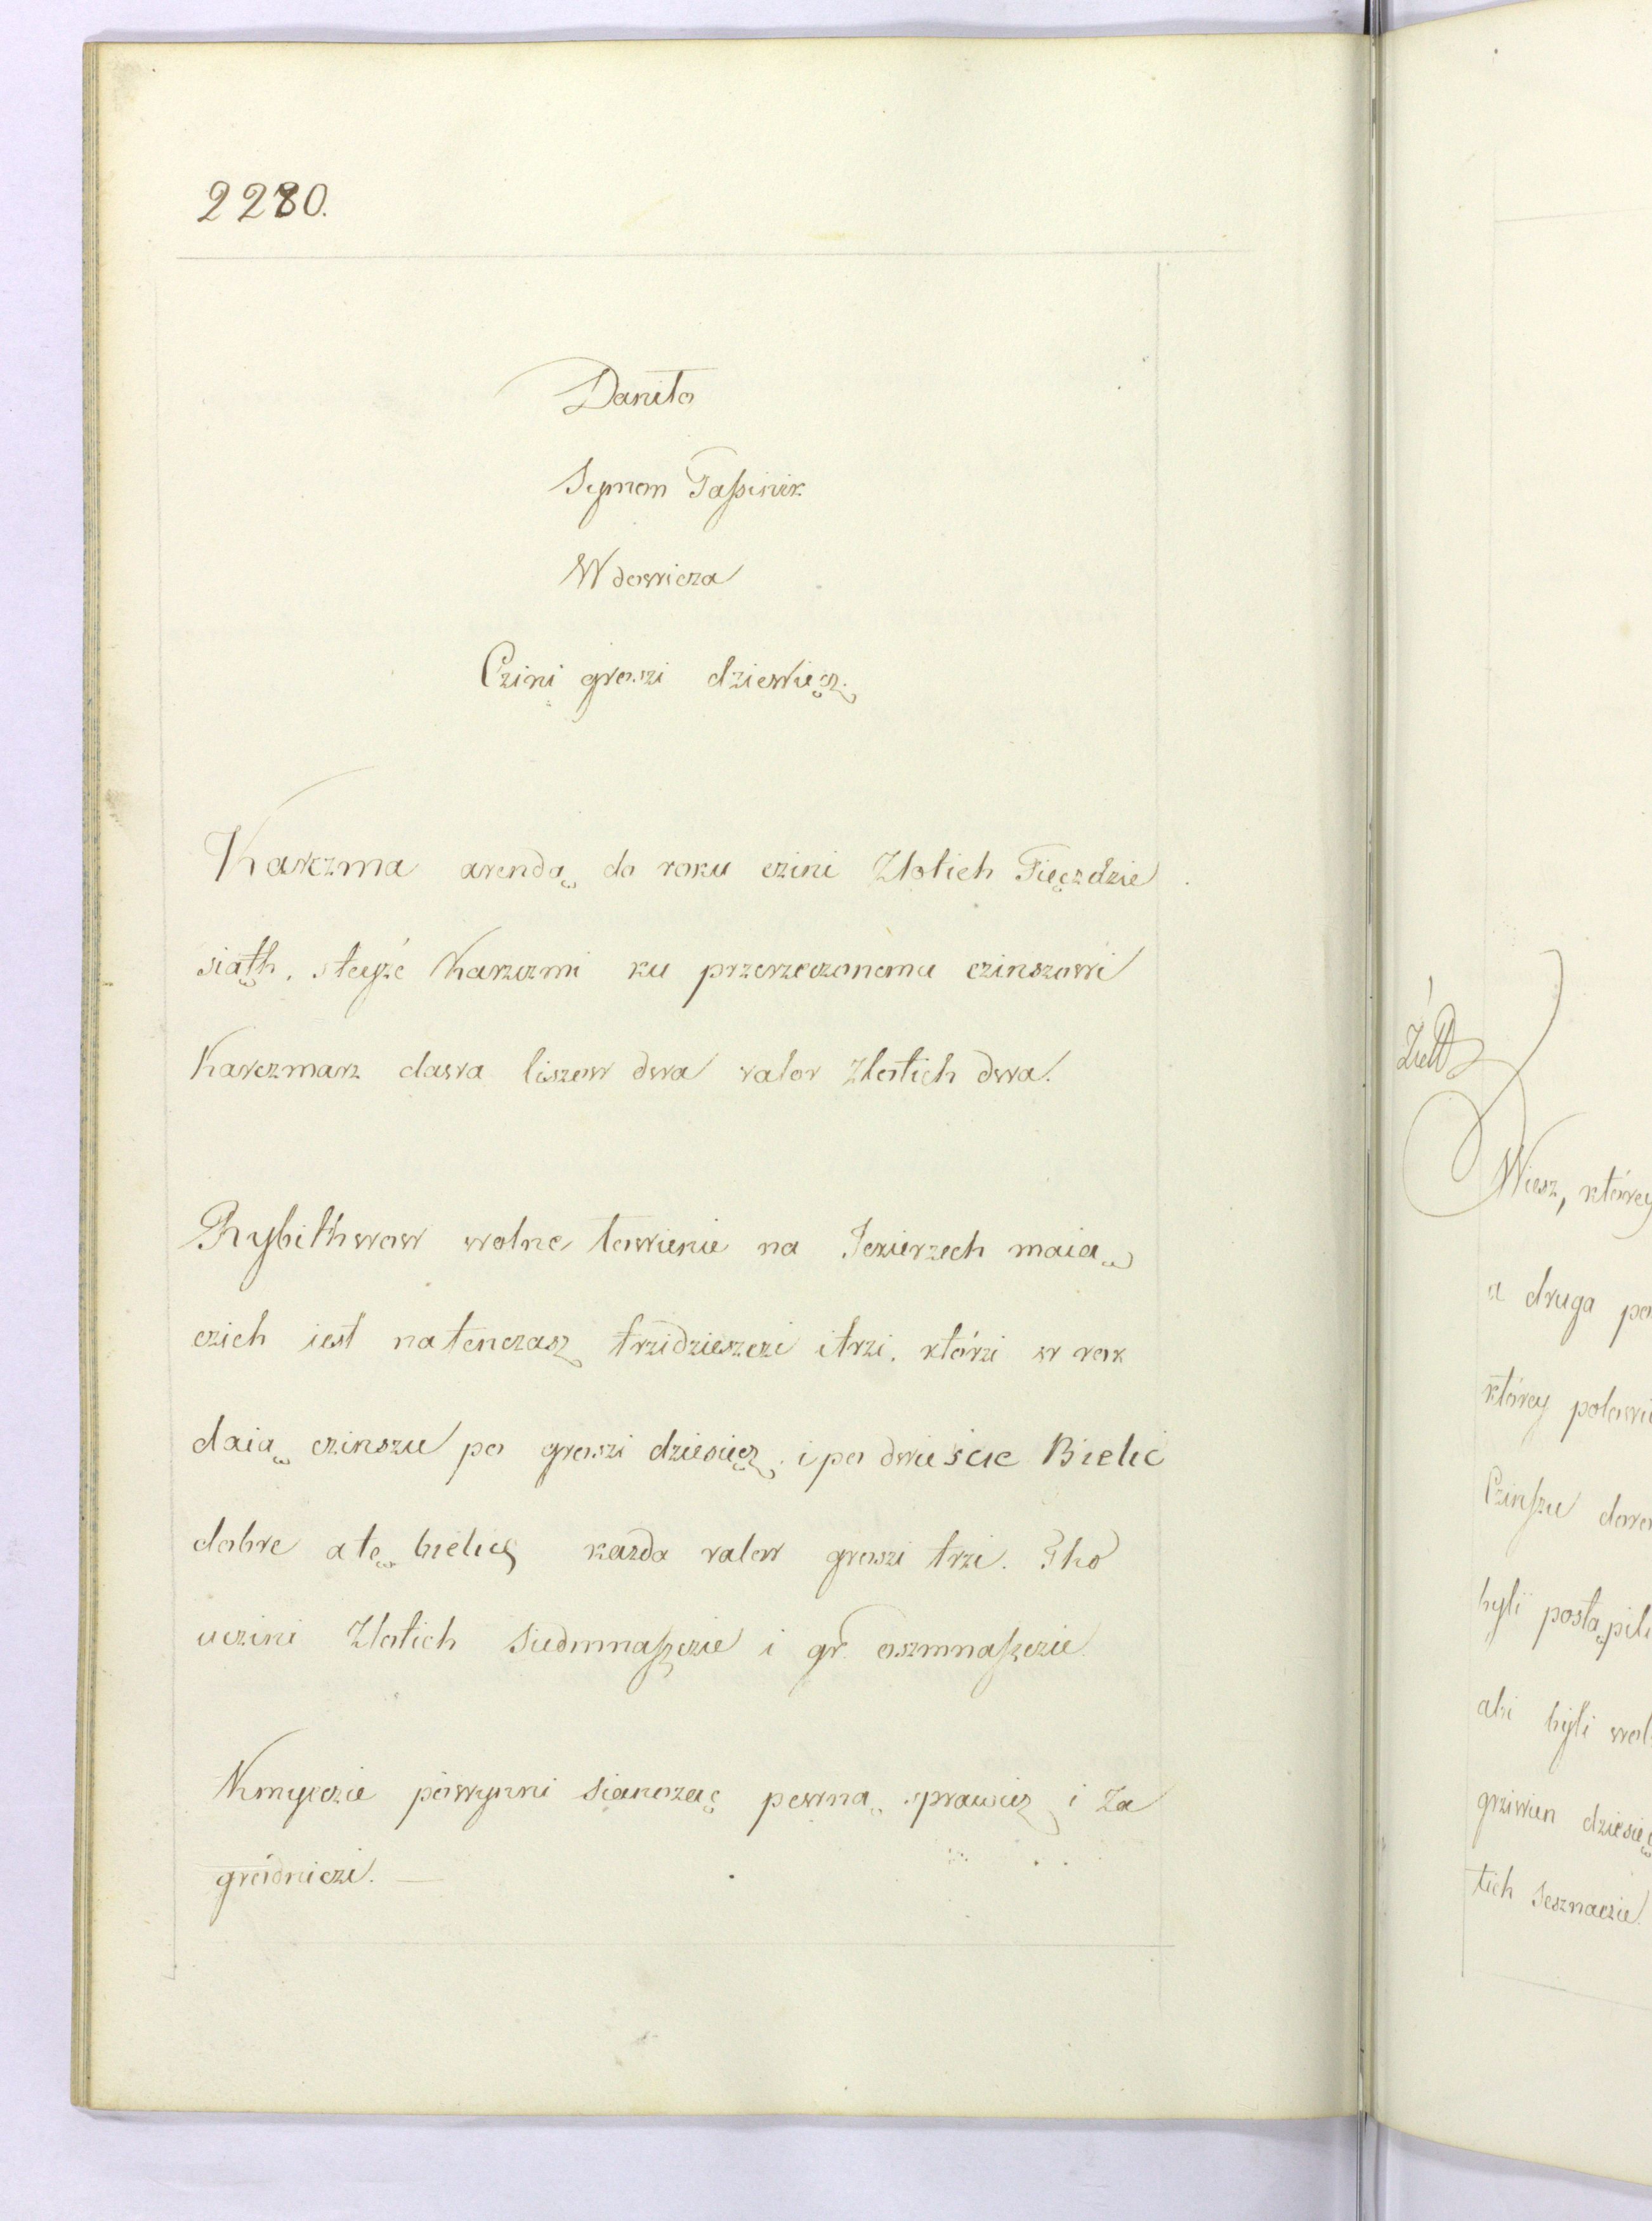 2280.
Daniło
Symon Paszinik
Wdowicza
Czini groszi dziewięcz
Karczma arendą do roku czini Zlotich Pięczdzie
siąth. s teyże Karczmi ku przerzeczonemu czinszowi
Karczmarz dawa liszow dwa valor Zlotich dwa.
Rybithwow wolne łowienie na Jezierzech maią
czich iest natenczasz trzidzieszczi i trzi. którzi w rok
daią czinszu po groszi dziesięcz i po dwieście Bielic
dobre a tę bielicę każda valor groszi trzi. Tho
uczini Zlotich Siedmnaszczie i gr. oszmnaszczie
Kmyeczie powynni Sianorzęc pewną sprawicz i Za
grodniczi. —
Wiesz, którey
a druga po
którey polowi
Czinszu
byli postąpili
abi byli wol
grziwien dziesię
tich Sesznaczie